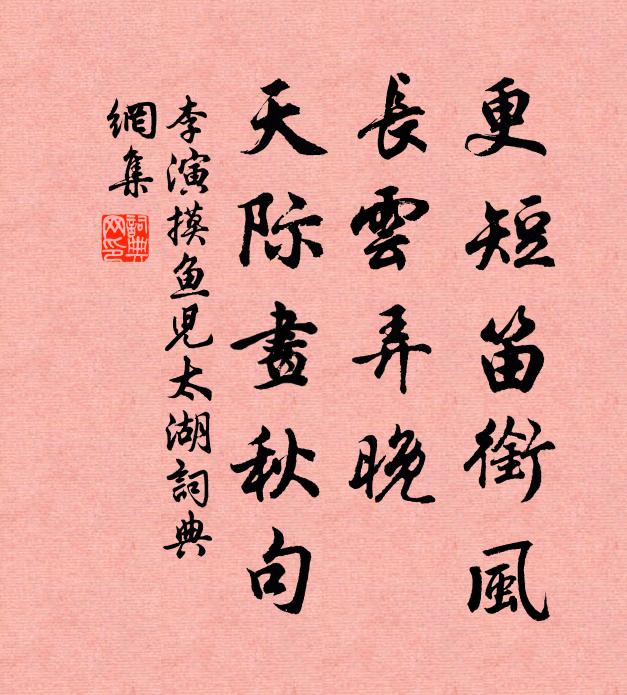 更短笛銜風
長雲弄晚
天际畫秋句
李演摸鱼児太湖詞典
網集
詞典
网印